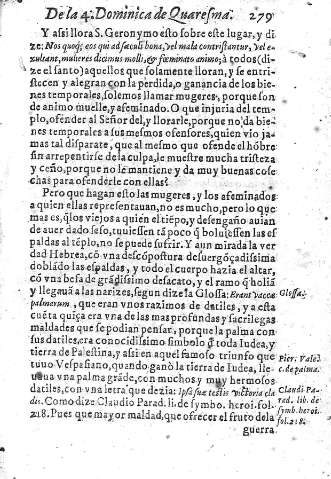 De la 4. Dominica de Quaresma. 279
Y assi llora S. Geronymo esto sobre este lugar, y di
ze: Nos quoq; eos qui ad sæculi bona, vel mala contristantur, vel e-
xultant, mulieres dicimus molli, & fœminato animo; à todos (di
ze el santo) aquellos que solamente lloran, y se entri-
stecen y alegran con la perdida, o ganancia de los bie-
nes temporales, solemos llamar mugeres, porque son
de animo muelle, y afeminado. O que injuria del tem-
plo, ofender al Señor del, y llorarle, porque no da bie-
nes temporales a sus mesmos ofensores, quien vio ja-
mas tal disparate, que al mesmo que ofende el hõbre
sin arrepentirse de la culpa, le muestre mucha tristeza
y ceño, porque no le mantiene y da muy buenas cose
chas para ofenderle con ellas?
Pero que hagan esto las mugeres, y los afeminados
a quien ellas representauan, no es mucho, pero lo que
mas es, q̃ los viejos a quien el tiẽpo, y desengaño auian
de auer dado seso, tuuiessen tã poco q̃ boluiessen las es
paldas al tẽplo, no se puede sufrir. Y aun mirada la ver
dad Hebrea, cõ vna descõpostura desuergõçadissima
doblãdo las espaldas, y todo el cuerpo hazia el altar,
cõ vna befa de grãdissimo desacato, y el ramo q̃ holiã
y llegauã a las narizes, segun dize la Glossa: Erant vaccæ
palmarum, que eran vnos razimos de datiles, y a esta
cuẽta quiça era vna de las mas profundas y sacrilegas
maldades que se podian pensar, porque la palma con
sus datiles, era conocidissimo simbolo de toda Iudea, y
tierra de Palestina, y assi en aquel famoso triunfo que
tuuo Vespasiano, quando ganò la tierra de Iudea, lle-
uaua vna palma grãde, con muchos y muy hermosos
datiles, con vna letra que dezia: Ipsa suæ testis victoria cla
dis. Como dize Claudio Parad. li. de symbo. heroi. fol.
218. Pues que mayor maldad, que ofrecer el fruto dela
guerra
Glossa.
Pier. Vale.
c. de palma.
Claudi. Pa-
rad. lib. de
symb. heroi.
fol. 218.